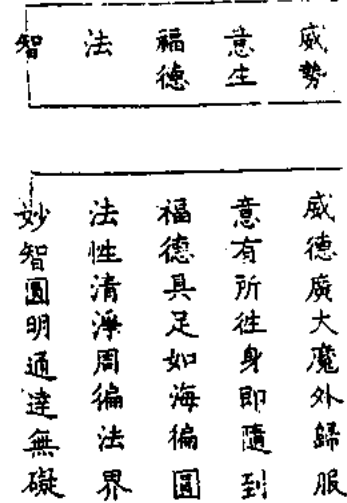 威勢
意生
福德
法
智
威德廣大魔外歸服
意有所往身即隨到
福德具足如海徧圓
法性清淨周徧法界
妙智圓明通達無礙